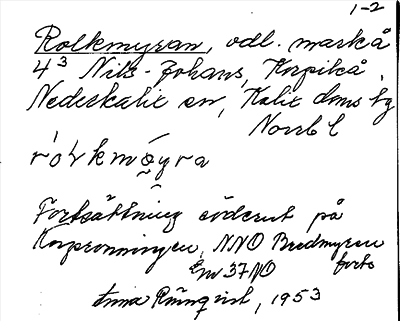 1-2
Rolkmyran, odl. mark å
4³ Nils-Johans, Korpikå,
Nederkalix sn, Kalix doms hg
Norrb l
rólkmỳra
Fortsättning söderut på
Korpronningen, NNO Bredmyren
forts
Anna Rünqvist, 1953